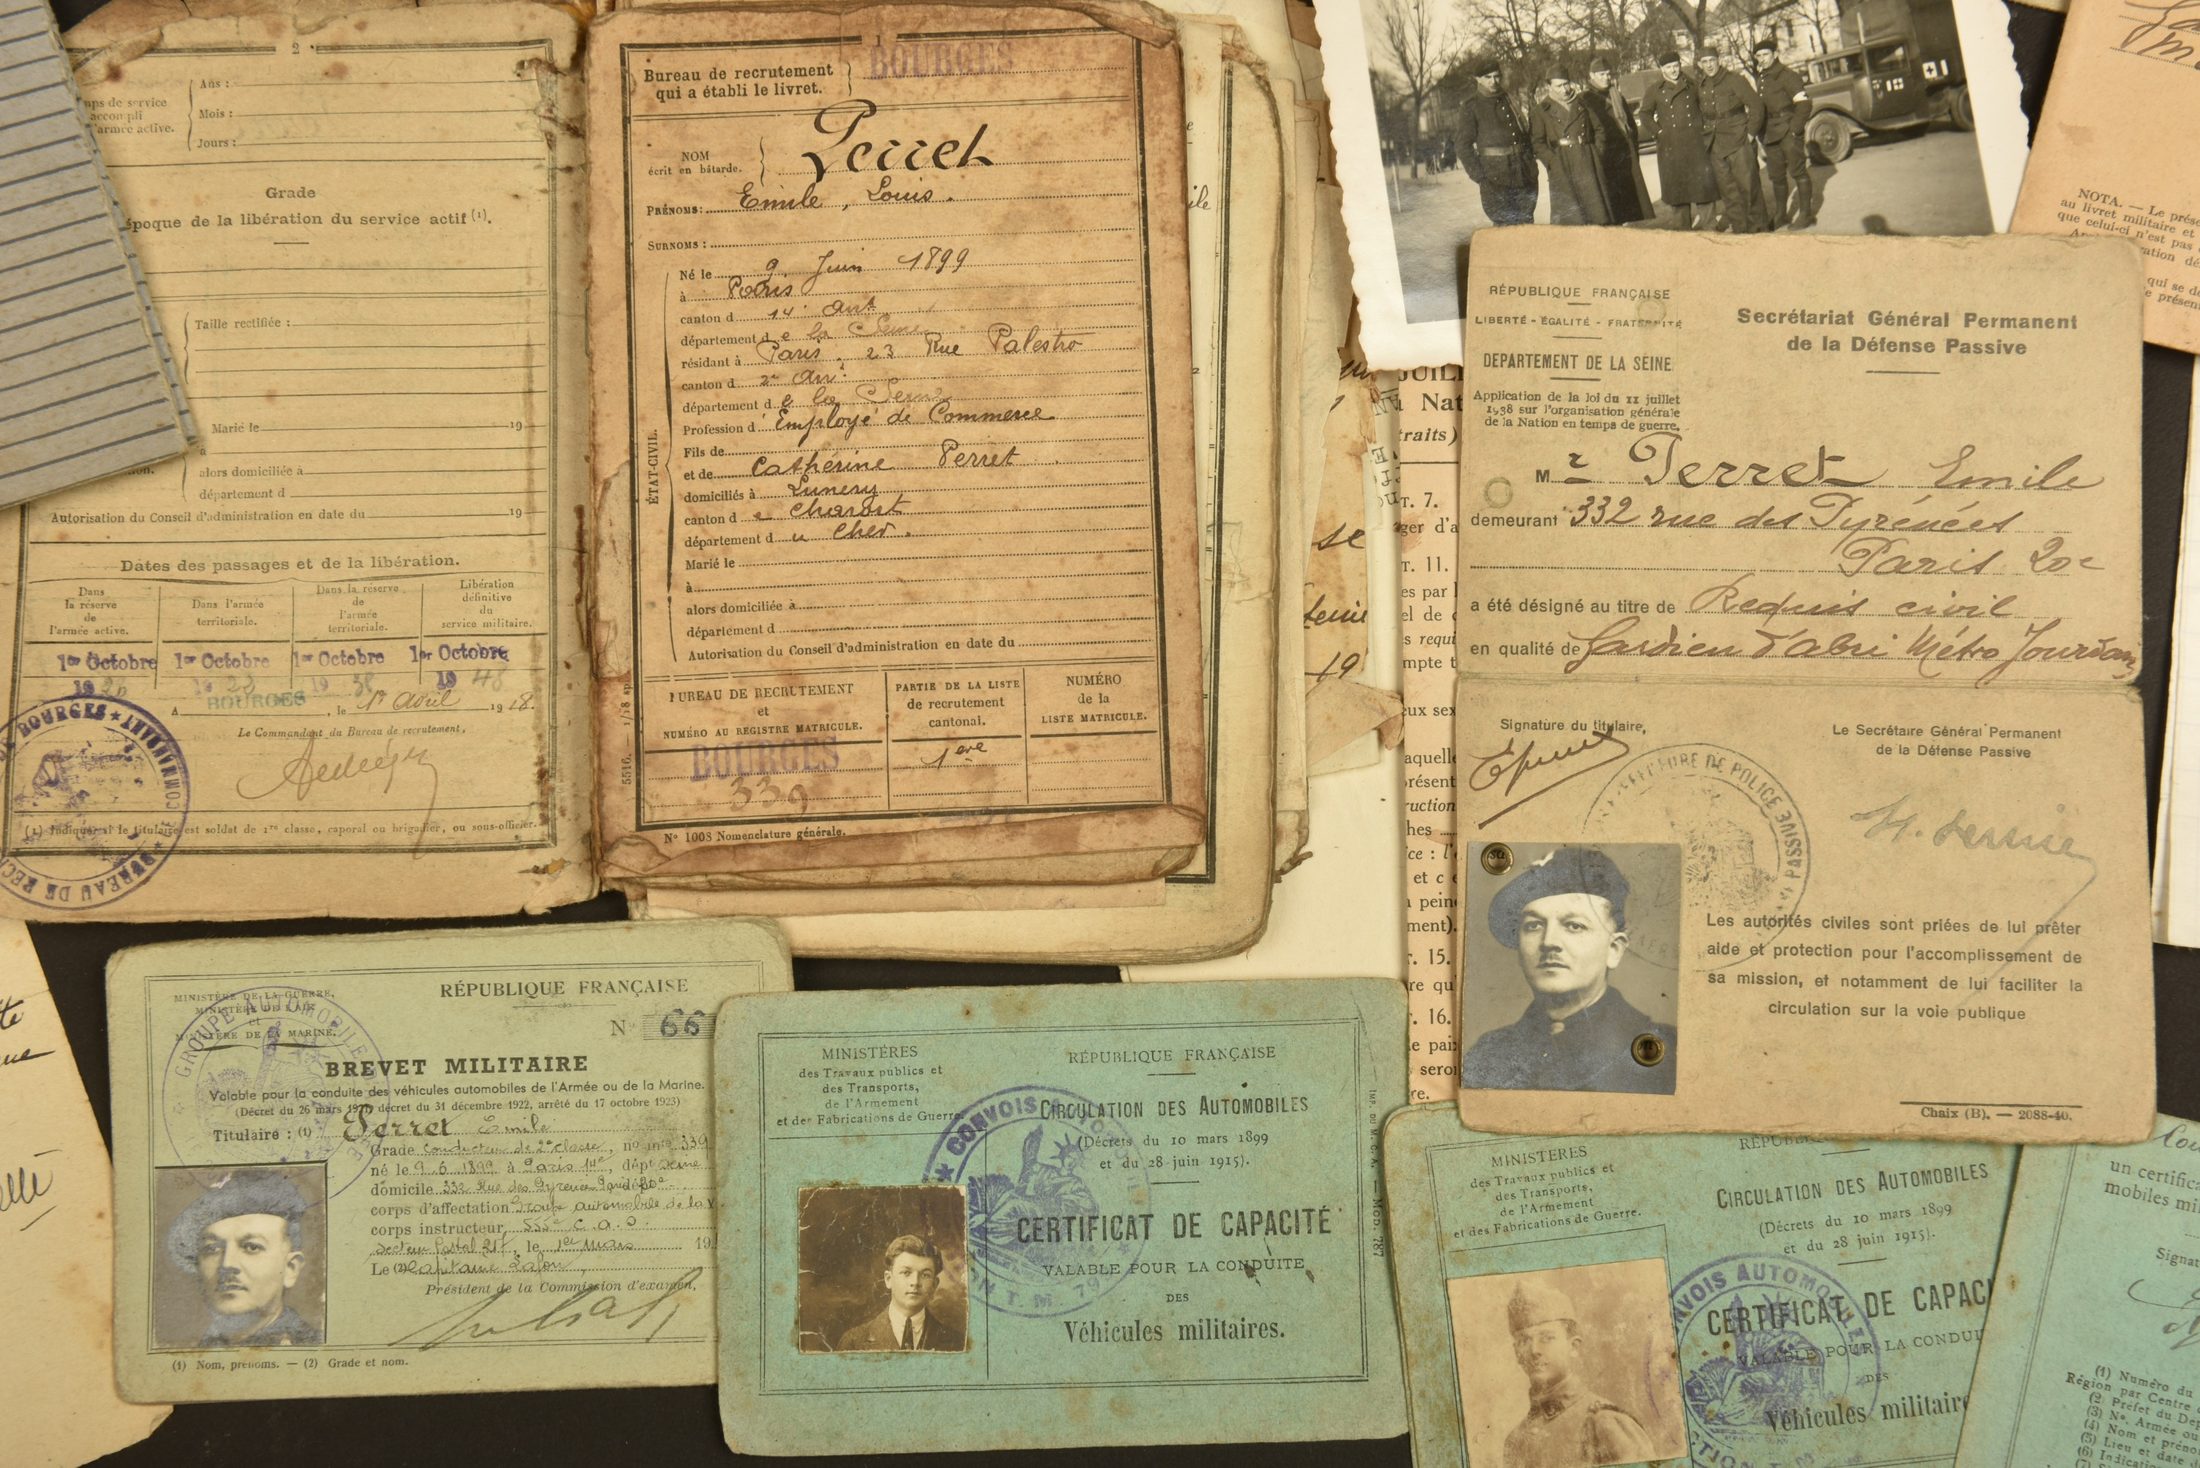 2
Ans :
Mois :
Jours :
ps de service
accompli
armée active.
Grade
époque de la libération du service actif (1).
Taille rectifiée :
Marié le 19
à
alors domiciliée à
département d
Autorisation du Conseil d'administration en date du 19
Dates des passages et de la libération.
Dans la réserve de l'armée active.
Dans l'armée territoriale.
Dans la réserve de l'armée territoriale.
Libération définitive du service militaire.
1er Octobre 1er Octobre 1er Octobre 1er Octobre
19 19 19 38 19 48
A BOURGES, le 1er Avril 1918.
Le Commandant du Bureau de recrutement,
(1) Indiquer si le titulaire est soldat de 1re classe, caporal ou brigadier, ou sous-officier.
BOURGES
1
Bureau de recrutement
qui a établi le livret.
BOURGES
NOM
écrit en bâtarde.
Perret
PRÉNOMS: Emile, Louis.
SURNOMS :
ÉTAT-CIVIL.
Né le 9 Juin 1899
à Paris
canton d 14e Arrt
département de la Seine
résidant à Paris, 23 Rue Palestro
canton d 2e Arrt
département de la Seine
Profession d'Employé de Commerce
Fils de
et de Cathérine Perret
domiciliés à Lunery
canton de Charost
département du Cher.
Marié le
à
alors domiciliée à
département d
Autorisation du Conseil d'administration en date du
BUREAU DE RECRUTEMENT
et
NUMÉRO AU REGISTRE MATRICULE.
PARTIE DE LA LISTE
de recrutement
cantonal.
NUMÉRO
de la
LISTE MATRICULE.
BOURGES
339
1ère
N° 1008 Nomenclature générale.
RÉPUBLIQUE FRANÇAISE
LIBERTÉ - ÉGALITÉ - FRATERNITÉ
DÉPARTEMENT DE LA SEINE
Application de la loi du 11 juillet
1938 sur l'organisation générale
de la Nation en temps de guerre.
Secrétariat Général Permanent
de la Défense Passive
Mr Perret Emile
demeurant 332 rue des Pyrénées
Paris 20e
a été désigné au titre de Requis civil
en qualité de Gardien d'abri Métro Jourdain
Signature du titulaire,
Le Secrétaire Général Permanent
de la Défense Passive
PRÉFECTURE DE POLICE
DÉFENSE PASSIVE
Les autorités civiles sont priées de lui prêter
aide et protection pour l'accomplissement de
sa mission, et notamment de lui faciliter la
circulation sur la voie publique
Chaix (B). — 2088-40.
MINISTÈRE DE LA GUERRE,
et
MINISTÈRE DE LA MARINE.
GROUPE AUTOMOBILE
RÉPUBLIQUE FRANÇAISE
N° 66
BREVET MILITAIRE
Valable pour la conduite des véhicules automobiles de l'Armée ou de la Marine.
décret du 31 décembre 1922, arrêté du 17 octobre 1923)
Titulaire : (1) Perret Emile
Grade Conducteur de 2e classe, n° mle 339
né le 9.6.1899 à Paris 14e, dépt Seine
domicile 332 Rue des Pyrénées
corps d'affectation Groupe automobile de la
corps instructeur
Secteur Postal, le 1er Mars 19
Le (2) Capitaine
Président de la Commission d'examen,
(1) Nom, prénoms. — (2) Grade et nom.
MINISTÈRES
des Travaux publics et
des Transports,
de l'Armement
et des Fabrications de Guerre.
RÉPUBLIQUE FRANÇAISE
CIRCULATION DES AUTOMOBILES
(Décrets du 10 mars 1899
et du 28 juin 1915).
CERTIFICAT DE CAPACITÉ
VALABLE POUR LA CONDUITE
DES
Véhicules militaires.
MOD. 787
MINISTÈRES
des Travaux publics et
des Transports,
de l'Armement
et des Fabrications de Guerre.
CIRCULATION DES AUTOMOBILES
(Décrets du 10 mars 1899
et du 28 juin 1915).
CERTIFICAT DE CAPAC
VALABLE POUR LA CONDUI
DES
Véhicules militaire
CONVOIS AUTOMOBILE
NOTA. — Le prése
au livret militaire et
que celui-ci n'est pas
qui se
présen
T. 7.
T. 11.
15.
16.
un certifica
mobiles mil
Signat
(1) Numéro du
Région par Centre
(2) Préfet du Dép
(3) N°. Armée ou
(4) Nom et préno
(5) Lieu et date d
(6) Indication